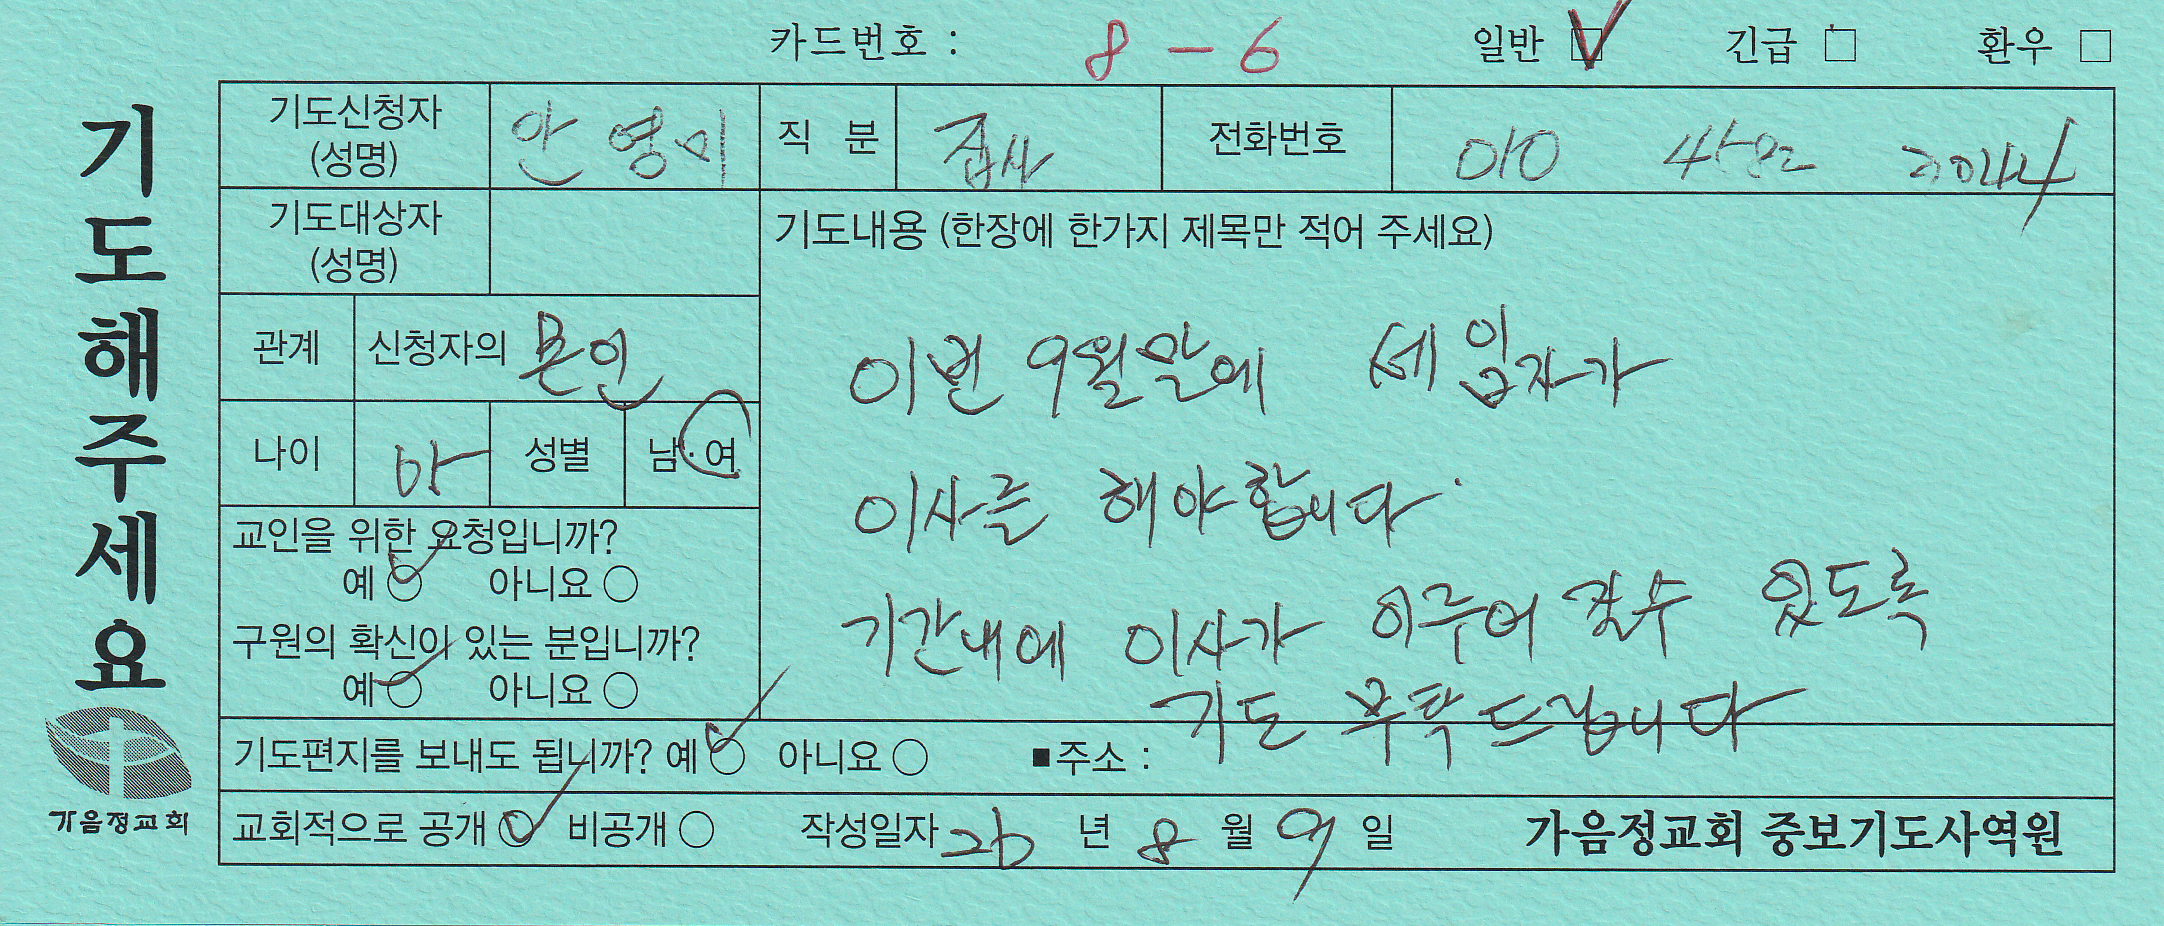 카드번호 : 8 - 6 일반 긴급 환우
기도해주세요
기도신청자 (성명) 안영미 직 분 집사 전화번호 010
기도대상자 (성명)
기도내용 (한장에 한가지 제목만 적어 주세요)
관계 신청자의 본인
나이 성별 남·여
이번 9월말에 세입자가
이사를 해야합니다.
기간내에 이사가 이루어 질수 있도록
기도 부탁드립니다
교인을 위한 요청입니까?
예 아니요
구원의 확신이 있는 분입니까?
예 아니요
기도편지를 보내도 됩니까? 예 아니요 ■주소 :
교회적으로 공개 비공개 작성일자 26 년 8 월 9 일 가음정교회 중보기도사역원
가음정교회